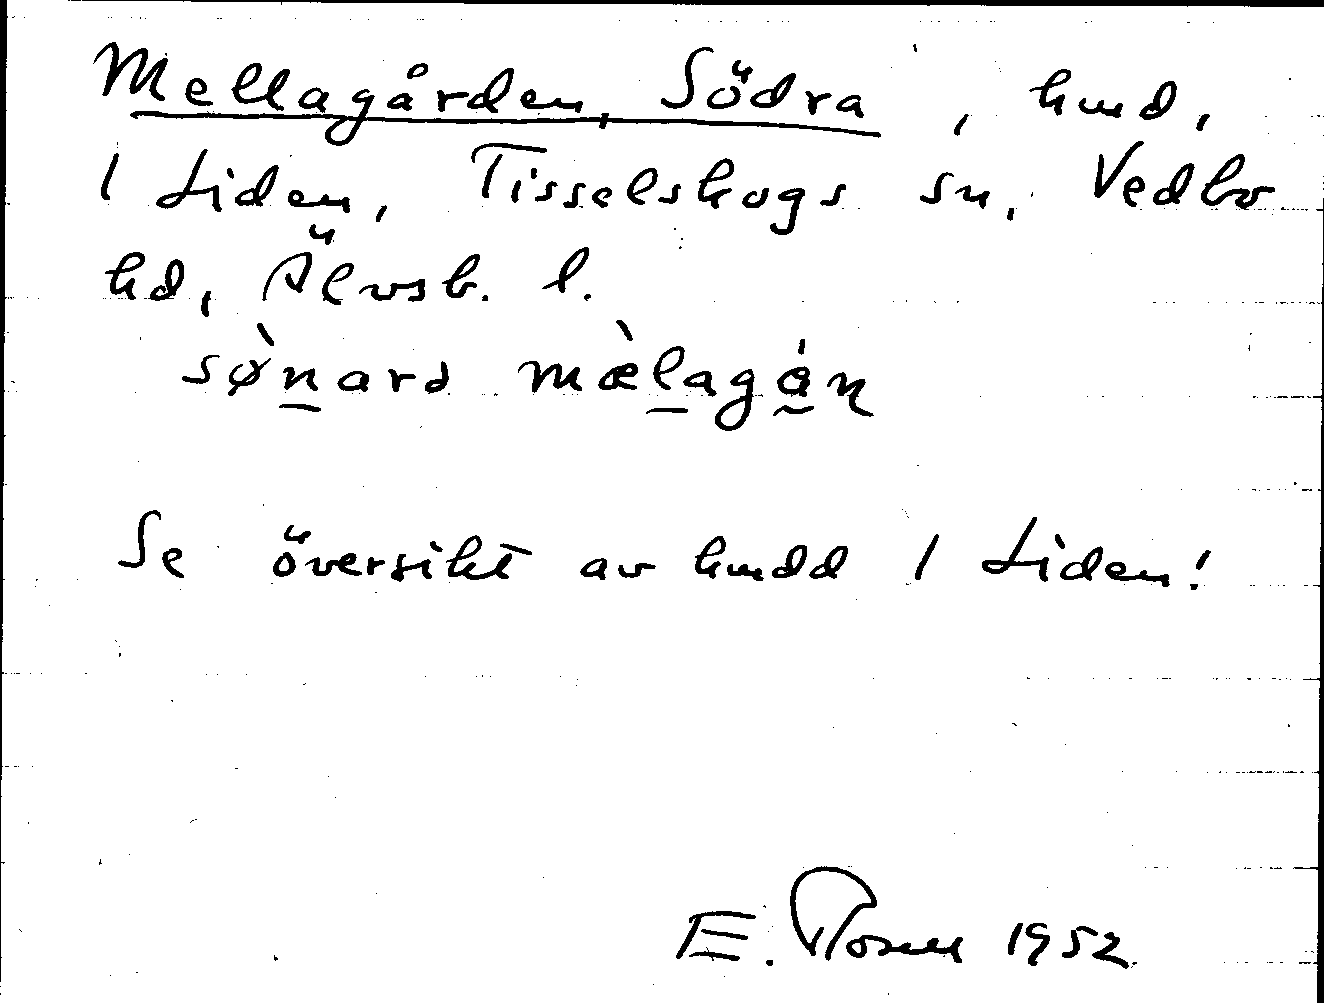 Mellagården, Södra, hmd,
1 Liden, Tisselskogs sn, Vedbo
hd, Älvsb. l.
sø̀nard mæ̀lagán
Se översikt av hmdd 1 Liden!
E. 1952